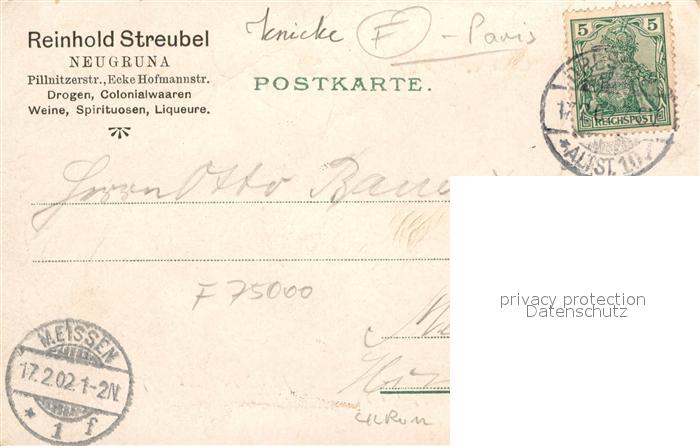 Reinhold Streubel
NEUGRUNA
Pillnitzerstr., Ecke Hofmannstr.
Drogen, Colonialwaaren
Weine, Spirituosen, Liqueure.
F - Paris
POSTKARTE.
5 5
REICHSPOST
17.2
*ALTST. 10
Herrn Otto
F 75000
privacy protection
Datenschutz
MEISSEN
17.2.02.1-2N.
* 1 f